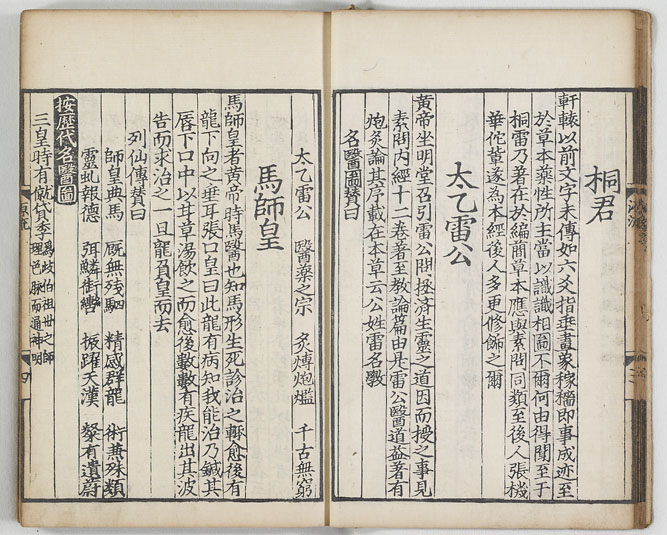 桐君
軒轅以前文字未傳如六爻指垂畫象稼穡即事成迹至
於草本藥性所主當以識識相圖不爾何由得聞至于
桐雷乃著在於編簡草本應與素問同類至後人張機
華佗輩遂為本經後人多更修飾之爾
太乙雷公
黃帝坐明堂召引雷公問拯済生靈之道因而授之事見
素問內經十二卷著至教論篇由是雷公醫道益著有
炮灸論其序載在本草云公姓雷名斆
名醫圖賛曰
太乙雷公 醫藥之宗 炙煿炮爁 千古無窮
馬師皇
馬師皇者黃帝時馬醫也知馬形生死診治之輙愈後有
龍下向之垂耳張口皇曰此龍有病知我能治乃鍼其
唇下口中以甘草湯飲之而愈後數數有疾龍出其波
告而求治之一旦龍負皇而去
列仙傳賛曰
師皇典馬 廐無殘駟 精感群龍 術兼殊類
靈虬報德 弭鱗銜轡 振躍天漢 粲有遺蔚
按歷代名醫圖
三皇時有僦貸季為歧伯祖世之師理色脉而通神明